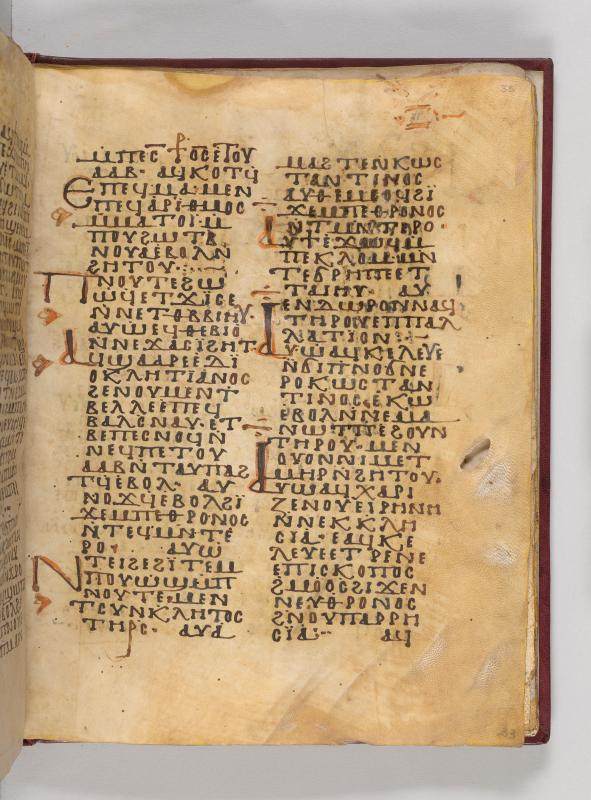 ⲙⲡⲉⲥ⳨ⲟⲥ ⲉⲧⲟⲩ
ⲁⲁⲃ· ⲁϥⲕⲟⲧϥ
ⲉⲡⲉϥⲙⲁ· ⲙⲉⲛ
ⲡⲉϥⲁⲣⲓⲑⲙⲟⲥ
ⲙⲙⲁⲧⲟⲓ· ⲙ
ⲡⲟⲩϩⲱⲧⲃ
ⲛⲟⲩⲁ ⲉⲃⲟⲗ ⲛ
ϩⲏⲧⲟⲩ·
ⲡⲛⲟⲩⲧⲉ ϩⲱ
ⲱϥ ⲉⲧϫⲓⲥⲉ
ⲛⲛⲉⲧⲑⲃⲃⲓⲏⲩ·
ⲁⲩⲱ ⲉϥⲑⲉⲃⲓⲟ
ⲛⲛⲉϫⲁⲥⲓϩⲏⲧ
ⲁϥϣⲁⲁⲣⲉ ⲉⲇⲓ
ⲟⲕⲗⲏⲧⲓⲁⲛⲟⲥ
ϩⲉⲛⲟⲩⲙⲉⲛⲧ
ⲃⲉⲗⲗⲉ ⲉⲡⲉϥ
ⲃⲁⲗ ⲥⲛⲁⲩ· ⲉⲧ
ⲃⲉ ⲡⲉⲥⲛⲟϥ ⲛ
ⲛⲉϥⲡⲉⲧⲟⲩ
ⲁⲁⲃ ⲛⲧⲁϥⲡⲁϩ
ⲧϥ ⲉⲃⲟⲗ· ⲁⲩ
ⲛⲟϫϥ ⲉⲃⲟⲗ ϩⲓ
ϫⲉⲙ ⲡⲉⲑⲣⲟⲛⲟⲥ
ⲛⲧⲉϥⲙⲛⲧⲉ
ⲣⲟ· ⲁⲩⲱ
ⲛⲧⲉⲓϩⲉ ϩⲓⲧⲉⲙ
ⲡⲟⲩⲱϣ ⲙⲡ
ⲛⲟⲩⲧⲉ· ⲙⲉⲛ
ⲧⲥⲩⲛⲕⲗⲏⲧⲟⲥ
ⲧⲏⲣⲥ· ⲁⲩⲁ
ⲙⲁϩⲧⲉ ⲛⲕⲱⲥ
ⲧⲁⲛⲧⲓⲛⲟⲥ
ⲁⲩⲑⲉⲙⲥⲟϥ ϩⲓ
ϫⲉⲙ ⲡⲉⲑⲣⲟⲛⲟⲥ
ⲛⲧⲙⲛⲧⲉⲣⲟ·
ⲁⲩϯ ⲉϫⲱϥ ⲙ
ⲡⲉⲕⲗⲟⲙ ⲙⲛ
ⲧⲉϭⲣⲏⲡⲉ ⲉⲧ
ⲧⲁⲓⲏⲩ· ⲁⲩ
ⲉⲛ ⲇⲱⲣⲟⲛ ⲛⲁϥ
ⲧⲏⲣⲟⲩ ⲉⲡⲡⲁⲗ
ⲗⲁⲧⲓⲟⲛ·
ⲁⲩⲱ ⲁϥⲕⲉⲗⲉⲩⲉ
ⲛϭⲓ ⲡⲛⲟϭ ⲛⲉ
ⲣⲟ ⲕⲱⲥⲧⲁⲛ
ⲧⲓⲛⲟⲥ ⲉⲕⲱ
ⲉⲃⲟⲗ ⲛⲛⲉⲙⲁ
ⲛⲱⲧⲡ ⲉϩⲟⲩⲛ
ⲧⲏⲣⲟⲩ· ⲙⲉⲛ
ⲟⲩⲟⲛ ⲛⲓⲙ ⲉⲧ
ⲙⲏⲣ ⲛϩⲏⲧⲟⲩ·
ⲁⲩⲱ ⲁϥⲭⲁⲣⲓ
ⲍⲉ ⲛⲟⲩⲉⲓⲣⲏⲛⲏ
ⲛⲛⲉⲕⲕⲗⲏ
ⲥⲓⲁ· ⲉⲁϥⲕⲉ
ⲗⲉⲩⲉ ⲉⲧⲣⲉ ⲛⲉ
ⲉⲡⲓⲥⲕⲟⲡⲟⲥ
ϩⲙⲟⲟⲥ ϩⲓϫⲉⲛ
ⲛⲉⲩⲑⲣⲟⲛⲟⲥ
ϩⲛ ⲟⲩⲡⲁⲣⲣⲏ
ⲥⲓⲁ· ⲁϥ
33